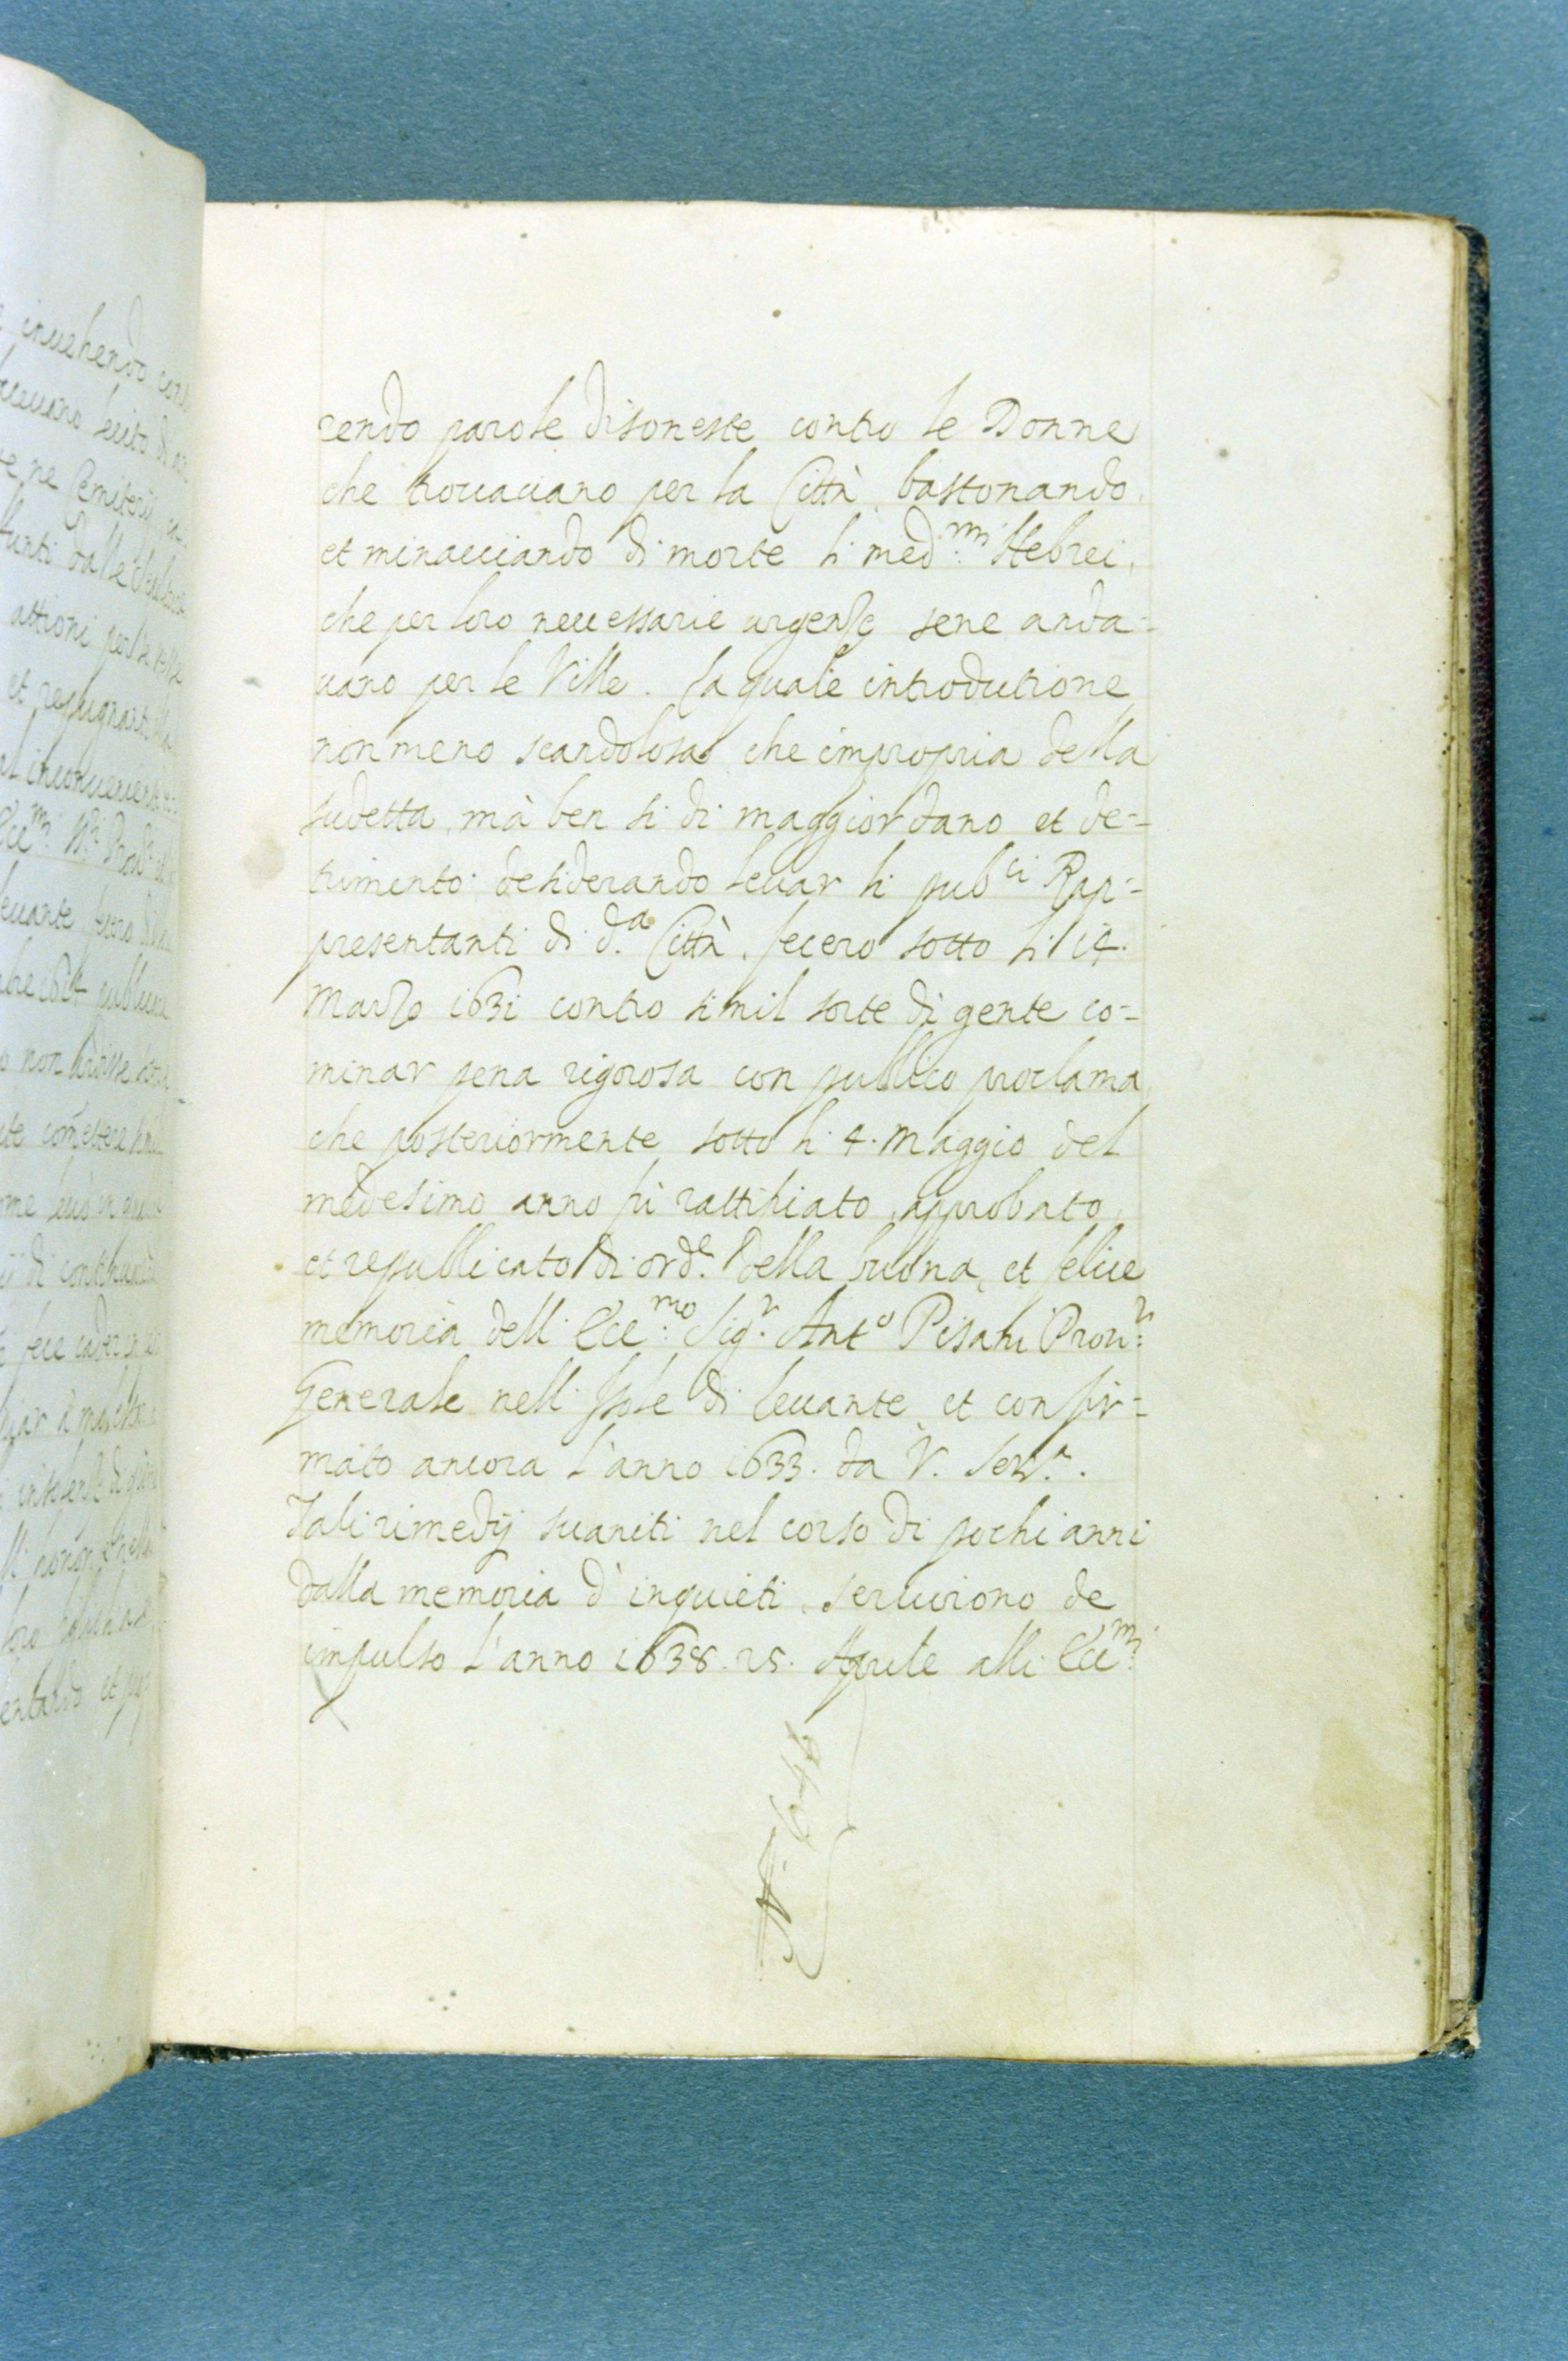 cendo parole disoneste contro le Donne
che trouauano per la Città, bastonando,
et minacciando di morte li med.mi Hebrei,
che per loro neccessarie urgenze sene anda-
uano per le Ville. La quale introdutione
non meno scandolosa che impropria della
sudetta, mà ben si di maggior dano et de-
trimento desiderando leuar li pub.ci Rap-
presentanti di d.a Città, fecero sotto li 14.
Marzo 1631 contro simil sorte di gente co-
minar pena rigorosa con publico proclama
che posteriormente sotto li 4. Maggio del
medesimo anno fù rattificato, approbato,
et republicato di ord.e della buona, et felice
memoria dell' Ecc.mo Sig.r Ant.o Pisani Prou.r
Generale nell' Isole di leuante, et confir-
mato ancora l'anno 1633. da V. Ser.tà.
Tali rimedij suaniti nel corso di pochi anni
dalla memoria d'inquieti, seruirono de
impulso l'anno 1638. 25. Aprile alli Ecc.mi